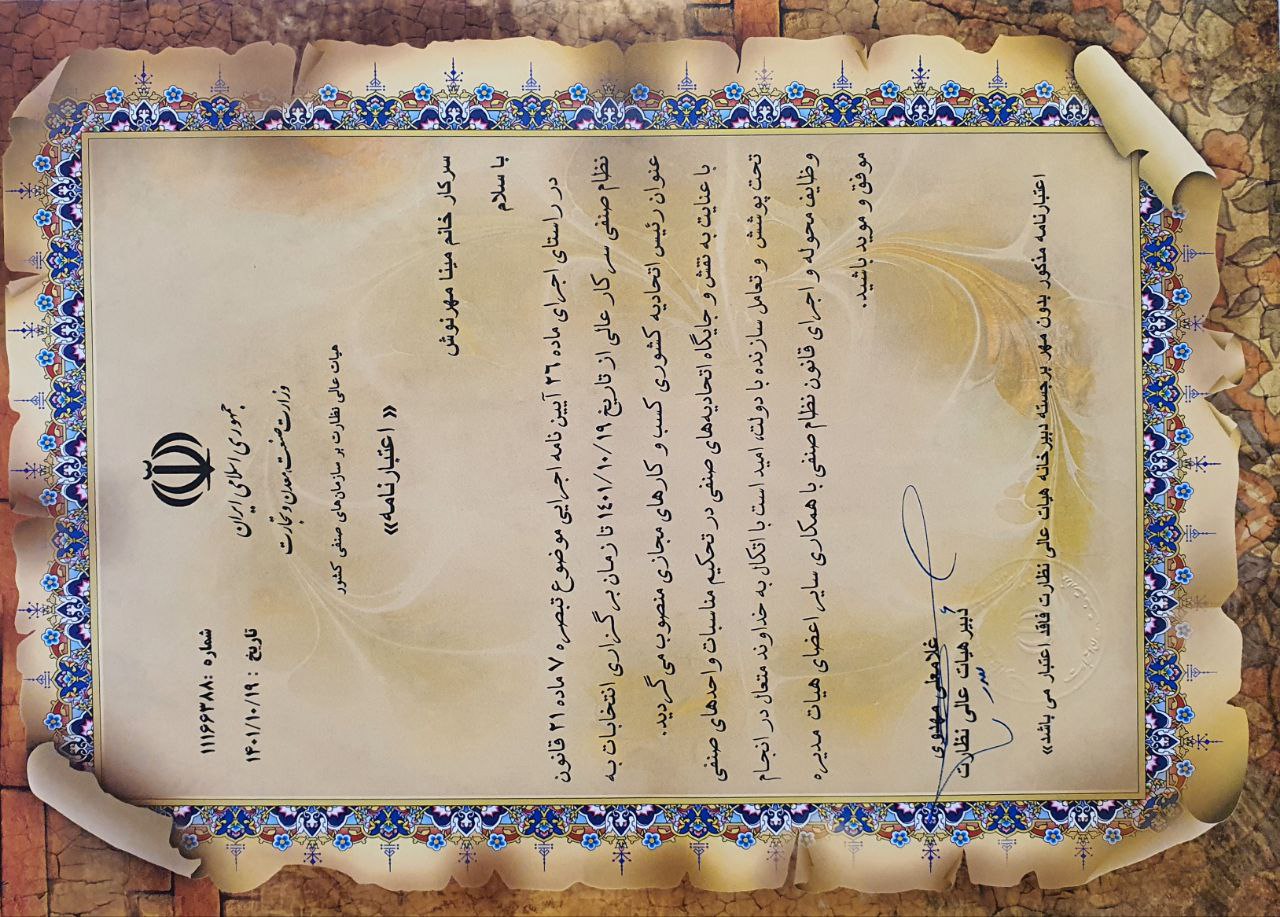 جمهوری اسلامی ایران
وزارت صنعت، معدن و تجارت
هیات عالی نظارت بر سازمان‌های صنفی کشور
شماره :۱۱۱۶۶۳۸۸
تاریخ : ۱۴۰۱/۱۰/۱۹
« اعتبارنامه»
سرکار خانم مینا مهرنوش
با سلام
در راستای اجرای ماده ۲۶ آیین نامه اجرایی موضوع تبصره ۷ ماده ۲۱ قانون
نظام صنفی سرکار عالی از تاریخ ۱۴۰۱/۱۰/۱۹ تا زمان برگزاری انتخابات به
عنوان رئیس اتحادیه کشوری کسب و کارهای مجازی منصوب می گردید.
با عنایت به نقش و جایگاه اتحادیه‌های صنفی در تحکیم مناسبات واحدهای صنفی
تحت پوشش و تعامل سازنده با دولت، امید است با اتکال به خداوند متعال در انجام
وظایف محوله و اجرای قانون نظام صنفی با همکاری سایر اعضای هیات مدیره
موفق و موید باشید.
غلامعلی مهدوی
دبیر هیات عالی نظارت
اعتبارنامه مذکور بدون مهر برجسته دبیرخانه هیات عالی نظارت فاقد اعتبار می باشد»